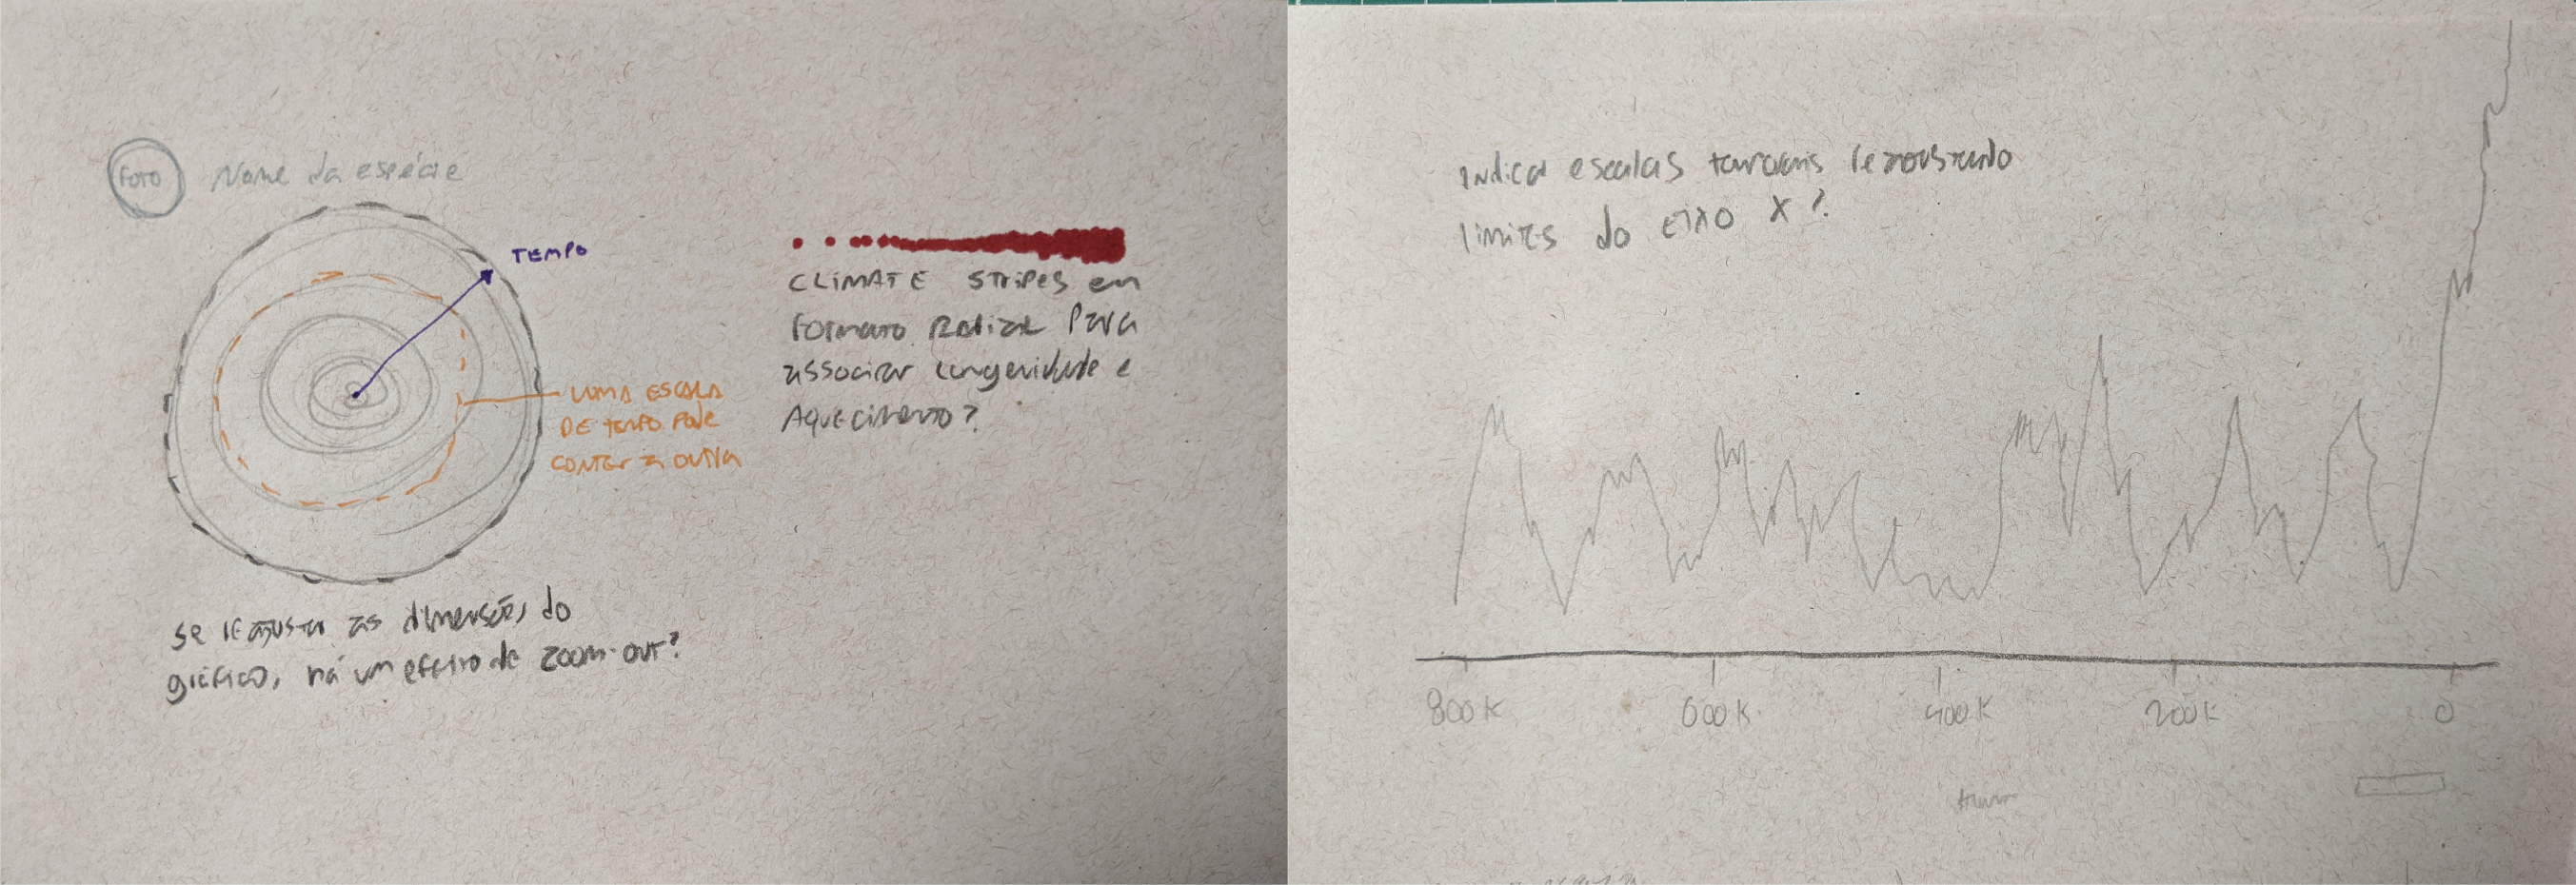 FOTO
Nome da espécie
TEMPO
UMA ESCALA
DE TEMPO PODE
CONTER A OUTRA
se reajustar as dimensões do
gráfico, há um efeito de zoom-out?
CLIMATE STRIPES em
Formato Radial Para
associar longevidade e
Aquecimento?
Indicar escalas
limites do EIXO X?
800K
600K
400K
200K
0